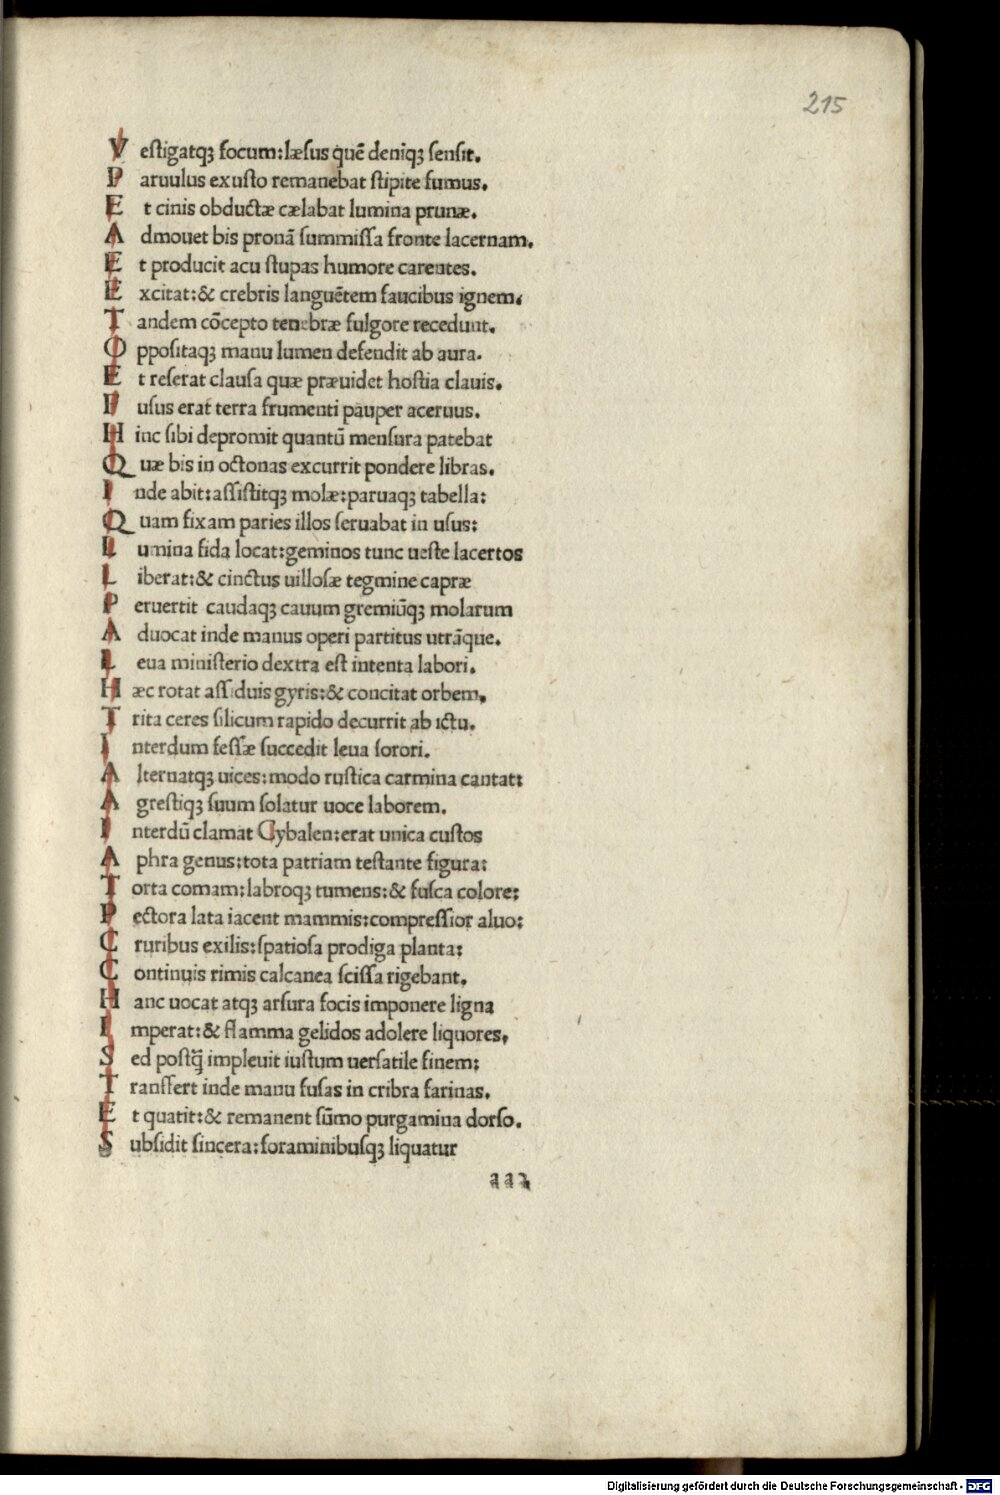 215
Veſtigatqꝫ focum: læſus quē deniqꝫ ſenſit.
Paruulus exuſto remanebat ſtipite fumus.
Et cinis obductæ cælabat lumina prunæ.
Admouet bis pronā ſummiſſa fronte lacernam.
Et producit acu ſtupas humore carentes.
Excitat: & crebris languētem faucibus ignem.
Tandem cōcepto tenebræ fulgore recedunt.
Oppoſitaqꝫ manu lumen defendit ab aura.
Et reſerat clauſa quæ præuidet hoſtia clauis.
Fuſus erat terra frumenti pauper aceruus.
Hinc ſibi depromit quantū menſura patebat
Quæ bis in octonas excurrit pondere libras.
Inde abit: aſſiſtitqꝫ molæ: paruaqꝫ tabella:
Quam fixam paries illos ſeruabat in uſus:
Lumina fida locat: geminos tunc ueſte lacertos
Liberat: & cinctus uilloſæ tegmine capræ
Peruertit caudaqꝫ cauum gremiūqꝫ molarum
Aduocat inde manus operi partitus utrāque.
Leua miniſterio dextra eſt intenta labori.
Hæc rotat aſſiduis gyris: & concitat orbem.
Trita ceres ſilicum rapido decurrit ab ictu.
Interdum feſſæ ſuccedit leua ſorori.
Alternatqꝫ uices: modo ruſtica carmina cantat:
Agreſtiqꝫ ſuum ſolatur uoce laborem.
Interdū clamat Cybalen: erat unica cuſtos
Aphra genus: tota patriam teſtante figura:
Torta comam: labroqꝫ tumens: & fuſca colore:
Pectora lata iacent mammis: compreſſior aluo:
Cruribus exilis: ſpatioſa prodiga planta:
Continuis rimis calcanea ſciſſa rigebant.
Hanc uocat atqꝫ arſura focis imponere ligna
Imperat: & flamma gelidos adolere liquores.
Sed poſtq̄ impleuit iuſtum uerſatile finem:
Tranſfert inde manu fuſas in cribra farinas.
Et quatit: & remanent ſūmo purgamina dorſo.
Subſidit ſincera: foraminibuſqꝫ liquatur
Digitalisierung gefördert durch die Deutsche Forschungsgemeinschaft - DFG